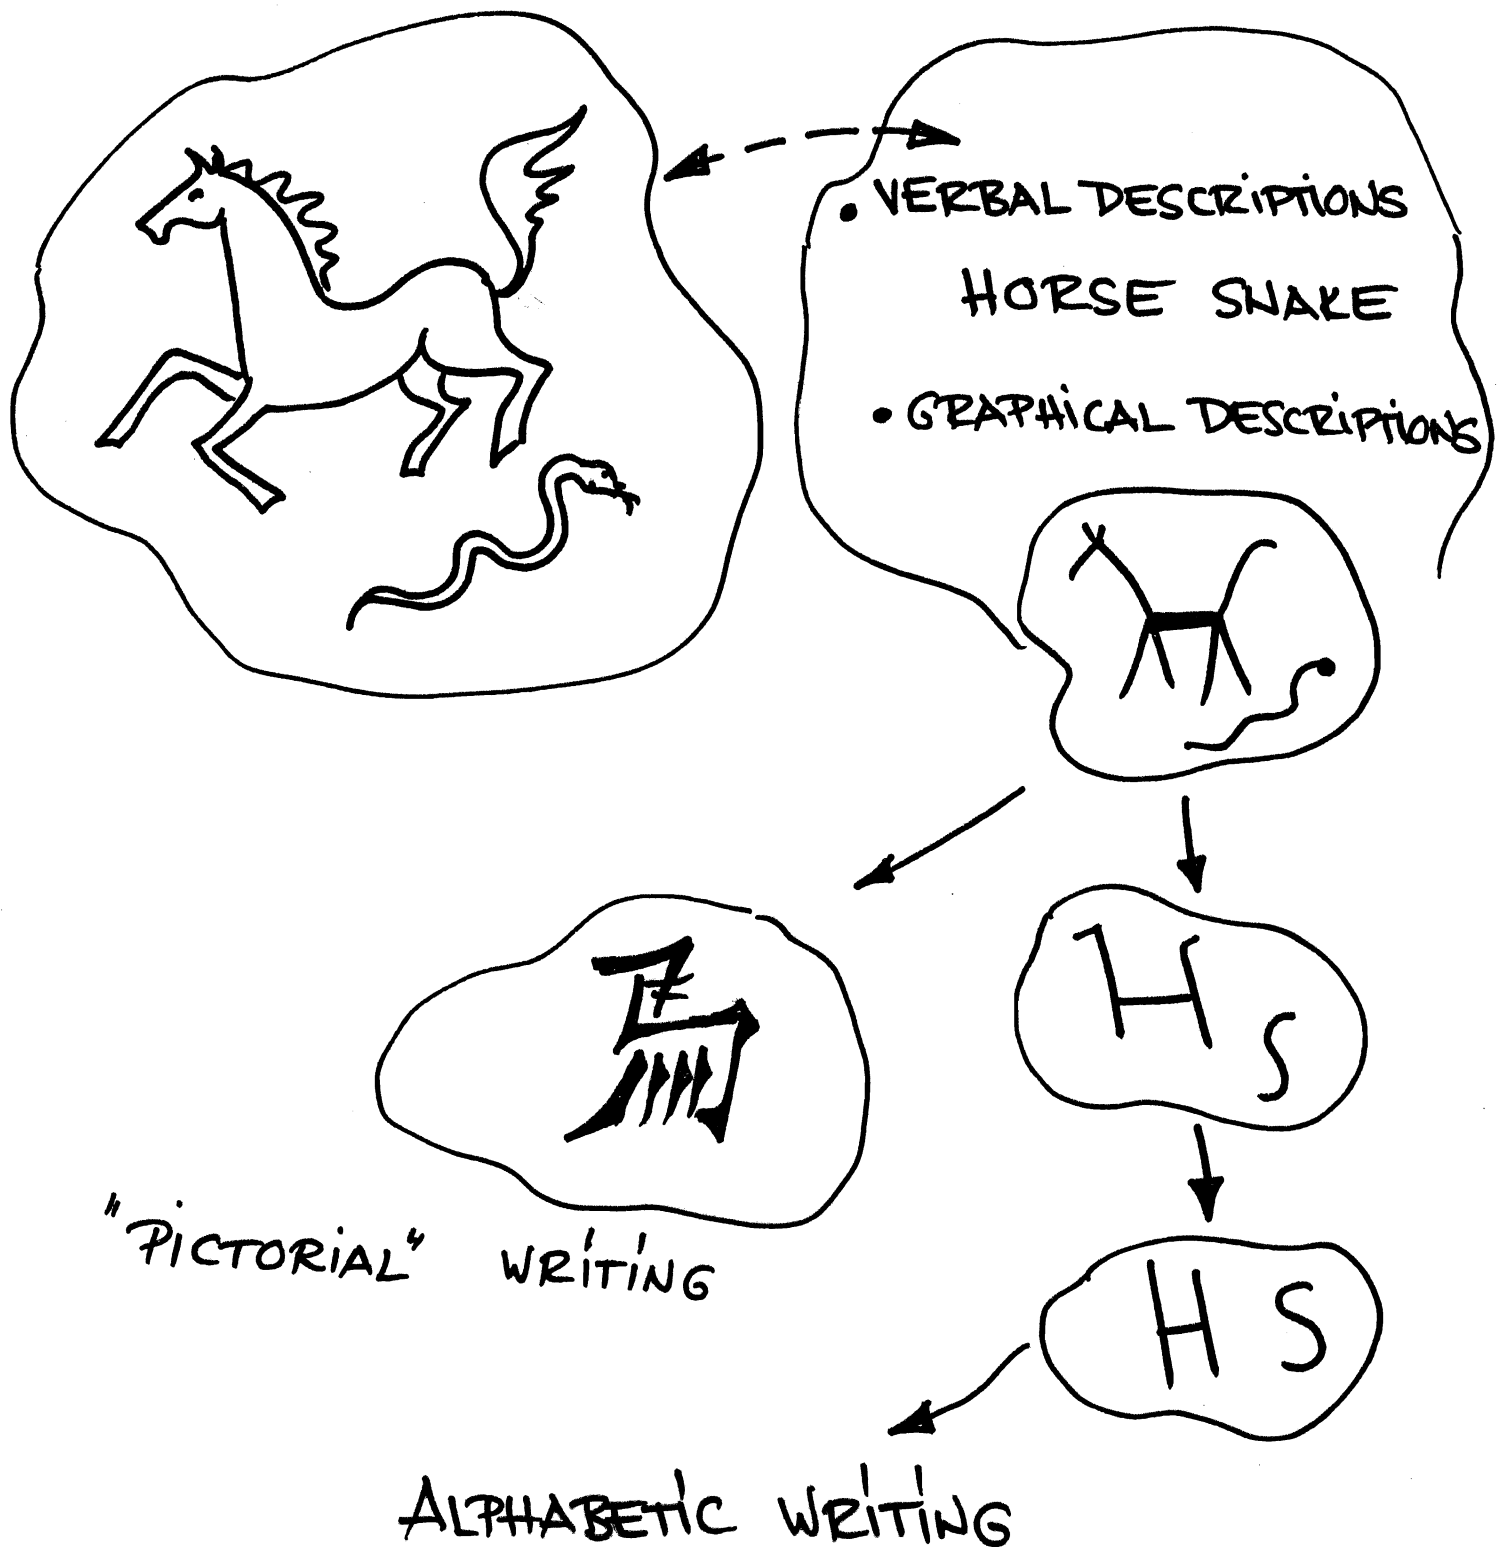 • VERBAL DESCRIPTIONS
HORSE SNAKE
• GRAPHICAL DESCRIPTIONS
H S
"PICTORIAL" WRITING
H S
ALPHABETIC WRITING